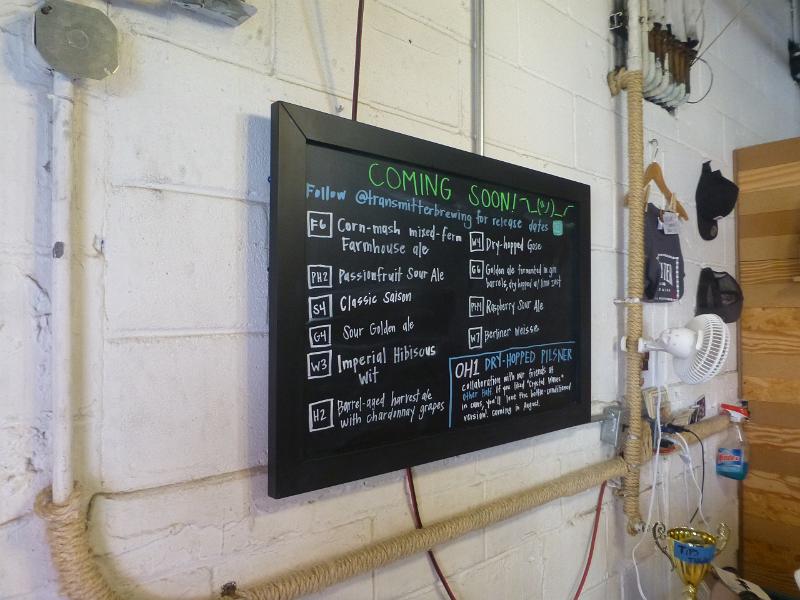 COMING SOON! ¯\_(ツ)_/¯
Follow @transmitterbrewing for release dates
F6 Corn-mash mixed-ferm
Farmhouse ale
PH2 Passionfruit Sour Ale
S4 Classic Saison
G4 Sour Golden ale
W3 Imperial Hibiscus
Wit
H2 Barrel-aged harvest ale
with chardonnay grapes
W4 Dry-hopped Gose
G6 Golden ale fermented in gin
barrels, dry hopped w/ lime zest
PH4 Raspberry Sour Ale
W7 Berliner Weisse
OH1 DRY-HOPPED PILSNER
collaboration with our friends at
Other Half. If you liked "Crystal Wones"
in cans, you'll love the bottle-conditioned
version! coming in August.
TIPS